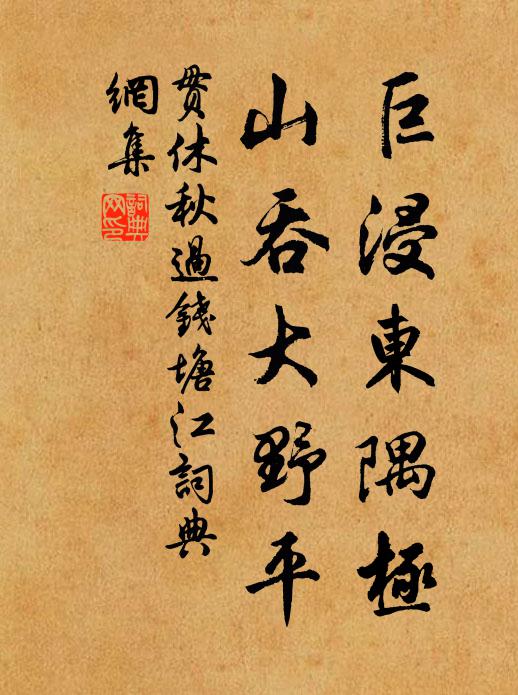 巨浸東隅極
山吞大野平
貫休秋過錢塘江詞典
網集
詞典
网印